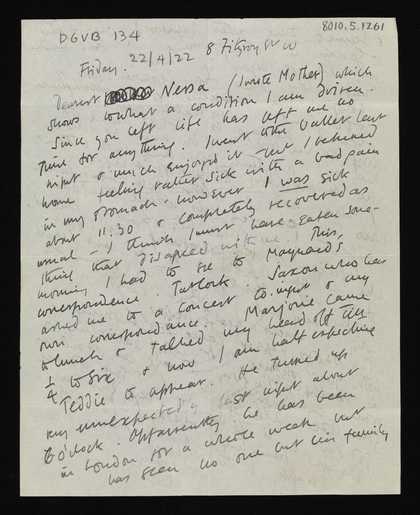 DGVB 134
8010.5.1261
8 Fitzroy St W
Friday. 22/4/22
Dearest Nessa (I wrote Mother) which
shows to what a condition I am driven.
Since you left life has left me no
time for anything. I went to the ballet last
night & much enjoyed it but I returned
home feeling rather sick with a bad pain
in my stomach - however I was sick
about 11.30 & completely recovered as
usual - I think I must have eaten some-
thing that disagreed with me. This
morning I had to see to Maynard's
correspondence. Tatlock. Saxon who has
asked me to a concert to.night & my
own correspondence. Marjorie came
to lunch & talked my head off till
1/4 to six & now I am half expecting
Teddie to appear. He turned up
very unexpectedly last night about
6 o'clock. Apparently he has been
in London for a whole week but
has seen no one but his family